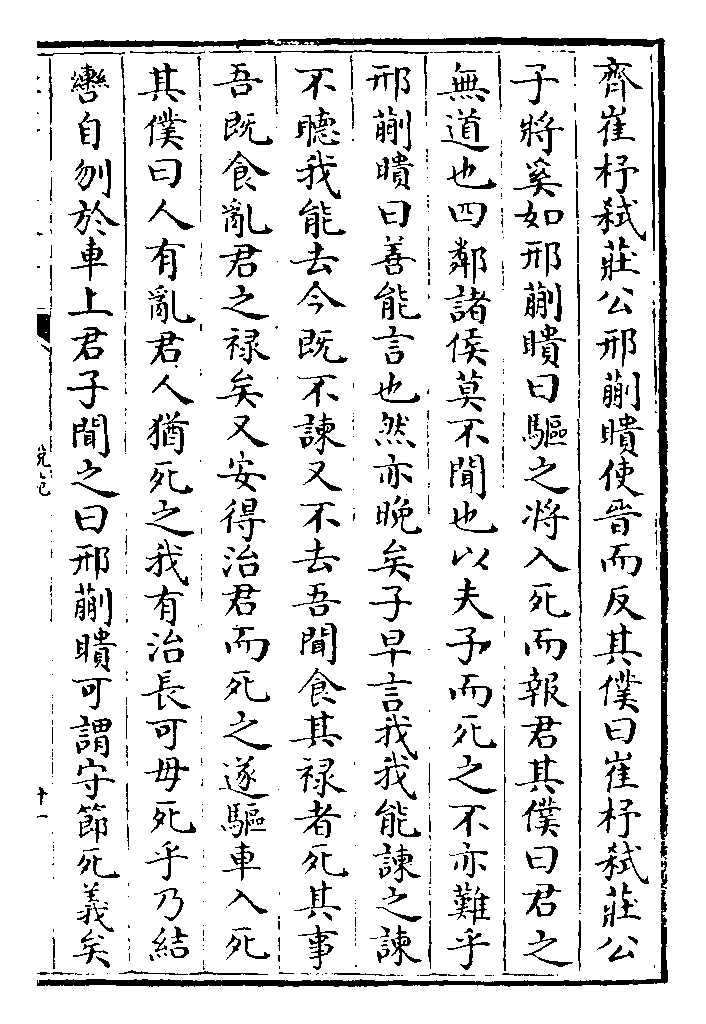 齊崔杼弑莊公邢蒯聵使晉而反其僕曰崔杼弑莊公
子將奚如邢蒯聵曰驅之將入死而報君其僕曰君之
無道也四鄰諸侯莫不聞也以夫子而死之不亦難乎
邢蒯聵曰善能言也然亦晚矣子早言我我能諫之諫
不聽我能去今既不諫又不去吾聞食其禄者死其事
吾既食亂君之禄矣又安得治君而死之遂驅車入死
其僕曰人有亂君人猶死之我有治長可毋死乎乃結
轡自刎於車上君子聞之曰邢蒯聵可謂守節死義矣
說苑
十一